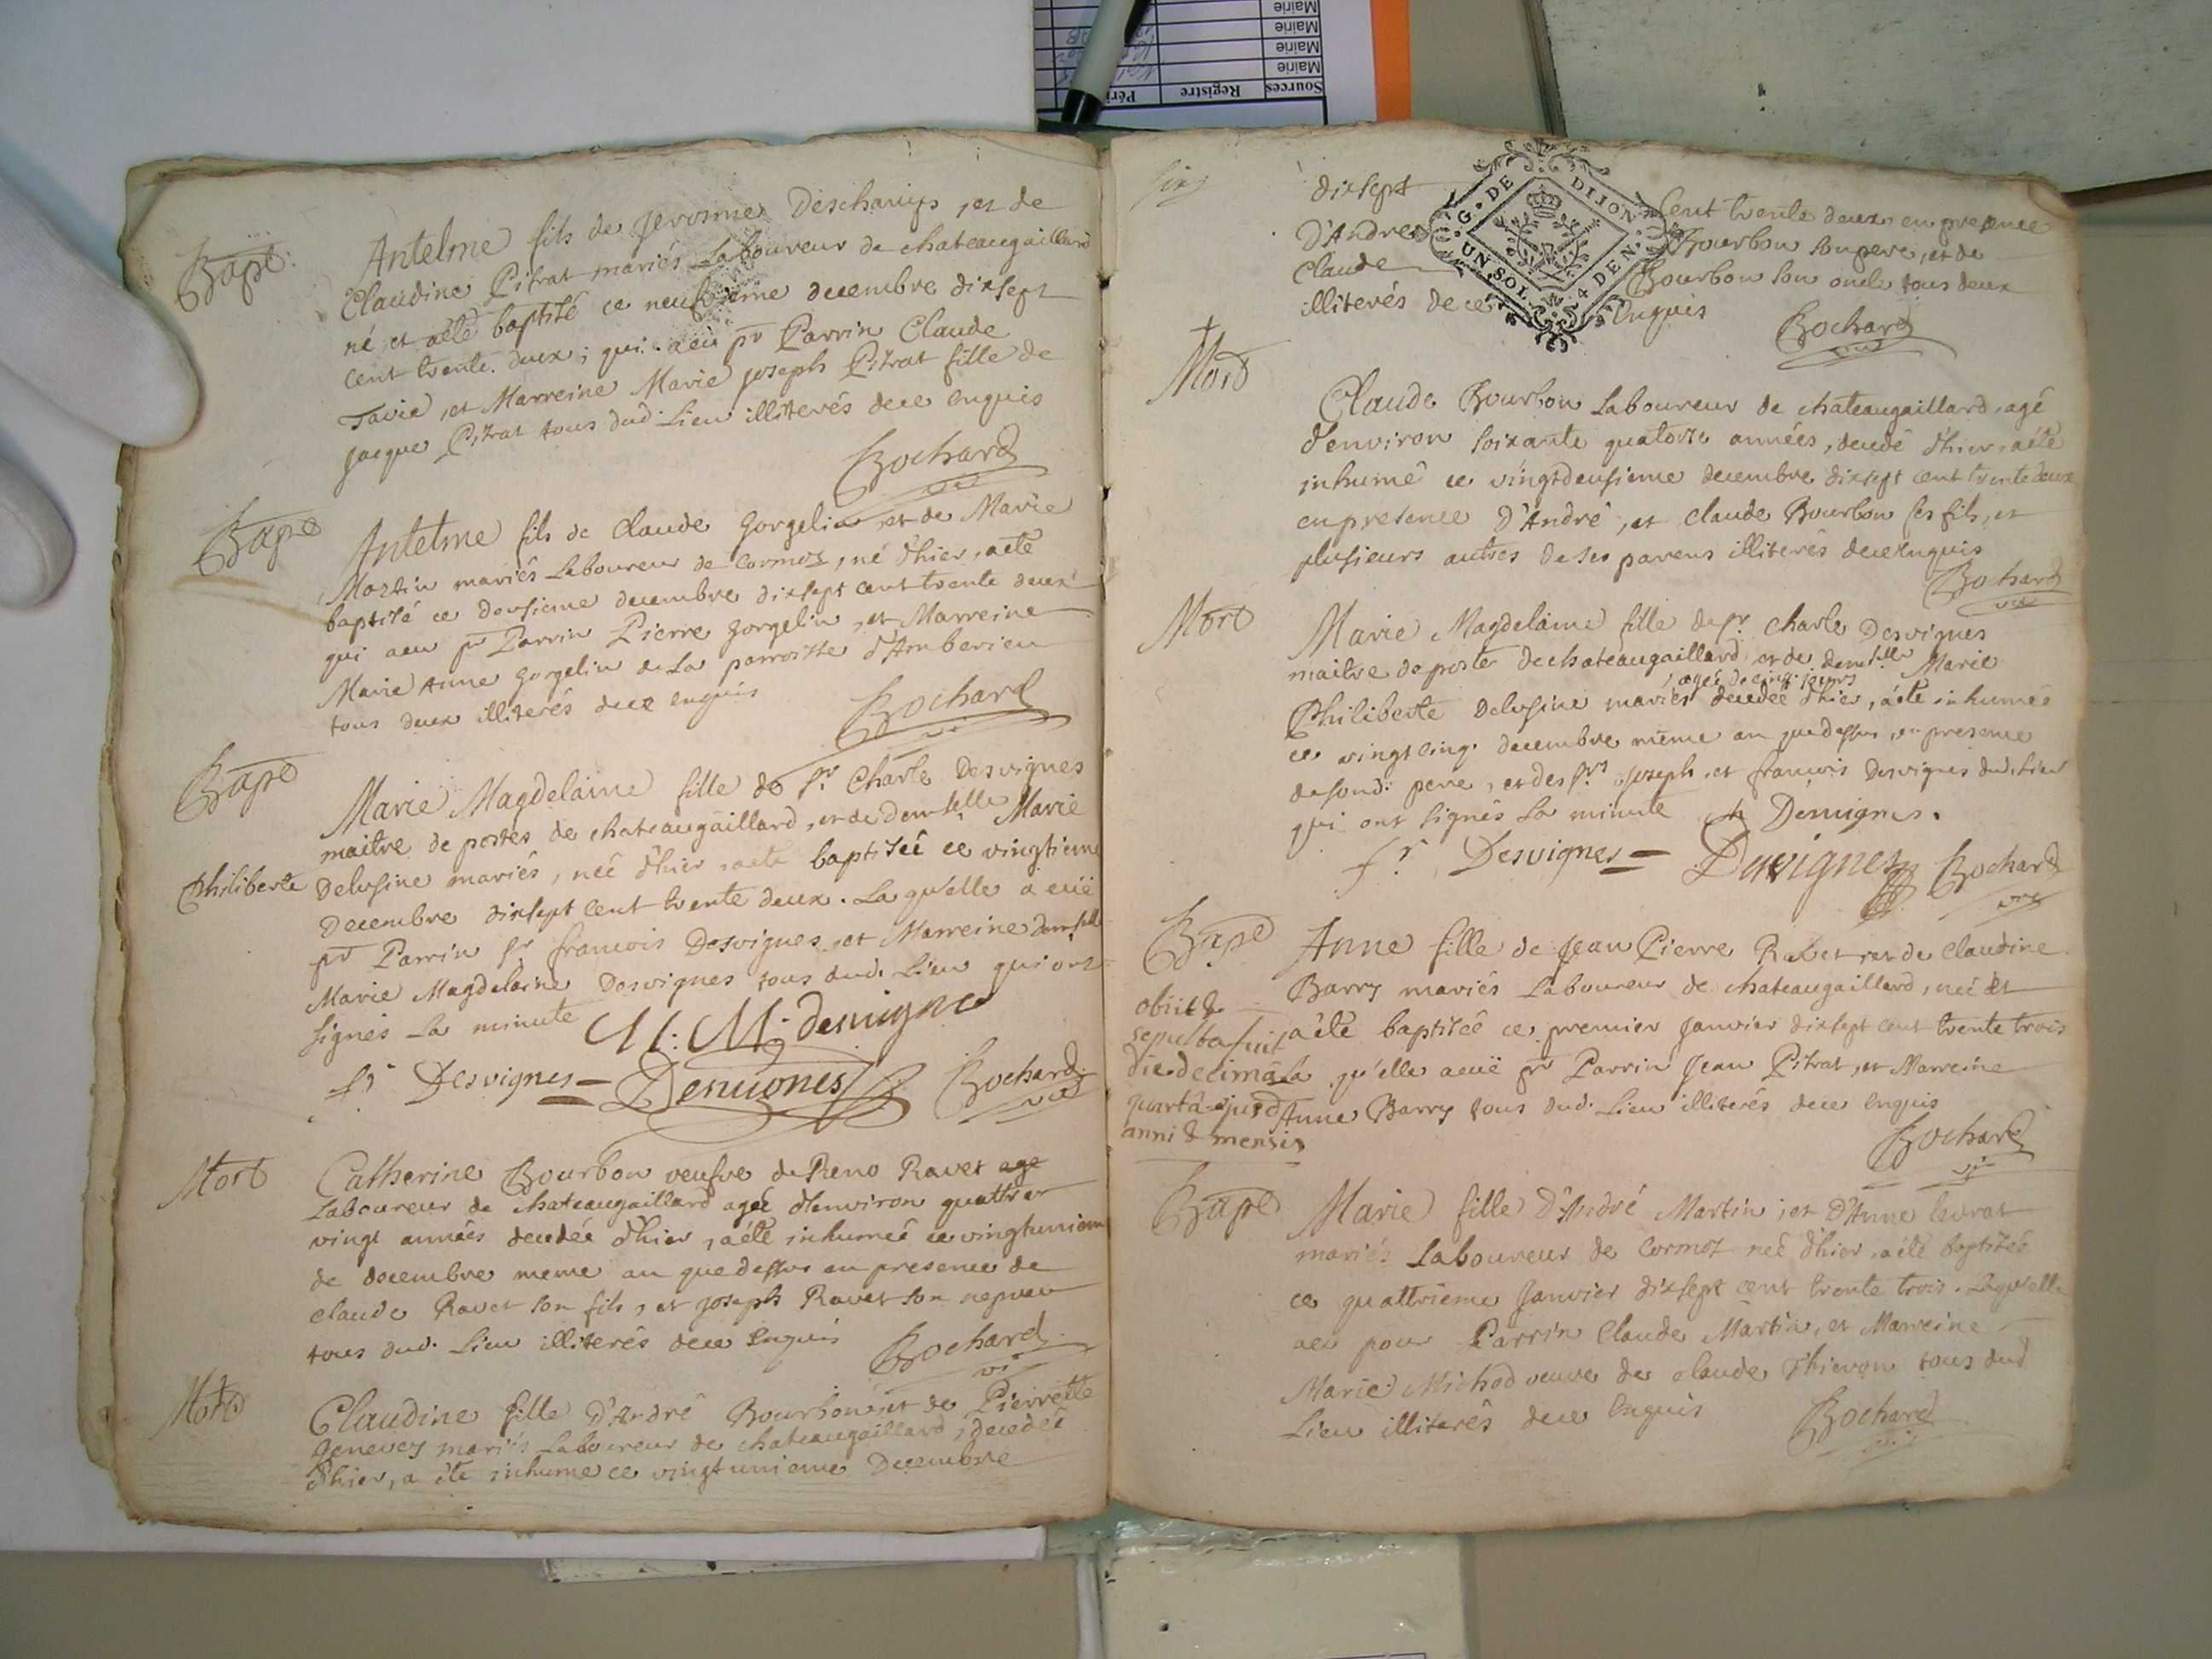 Sources Registre Péri
Mairie
Mairie
Mairie
Mairie
Bapt. Antelme fils de Jerosme Deschamps, et de
Claudine Pitrat mariés Laboureur de chateaugaillard
né et aété baptisé ce neufvieme decembre dixsept
cent trente deux ; qui aeu pr Parrin Claude
Tavie, et Marreine Marie joseph Pitrat fille de
jacque Pitrat tous dud. Lieu illiterés dece enquis
Bochard
Bapt Antelme fils de Claude Gorgelin et de Marie
Martin mariés Laboureur de Cormoz, né d'hier, aété
baptisé ce deusieme decembre dixsept cent trente deux
qui aeu pr Parrin Pierre Gorgelin, et Marreine
Marie Anne Gorgelin de La parroisse d'Amberieu
tous deux illiterés dece enquis
Bochard
Bapt Marie Magdelaine fille de sr. Charle Desvignes
maitre de postes de chateaugaillard, et de demlelle Marie
Philiberte Delosine mariés, née d'hier aété baptisée ce vingtieme
Decembre dixsept cent trente deux. La qu'elle a euë
pr Parrin sr francois Desvignes, et Marreine demlelle
Marie Magdelaine Desvignes tous dud. Lieu qui ont
signés La minute M: M: desvigne
fr Desvignes Desvignes Bochard
Mort Catherine Bourbon veufve de Reno Ravet age
Laboureur de chateaugaillard ageé d'environ quattre
vingt années decedée d'hier, aété inhumeé ce vingtunieme
de decembre meme an que dessus en presence de
claude Ravet son fils, et joseph Ravet son nepveu
tous dud. Lieu illiterés dece Enquis Bochard
Mort Claudine fille D'André Bourbon et de Pierrette
Genevey mariés Laboureur de chateaugaillard, decedée
d'hier, a été inhumée ce vingtunieme Decembre
dixsept Cent trente deux en presence
D'André Bourbon son pere, et de
Claude Bourbon son oncle tous deux
illiterés de ce Enquis
G. DE DIJON
UN SOL. 4 DEN.
Bochard
Mort
Claude Bourbon Laboureur de chateaugaillard, agé
d'environ soixante quatorze années, decedé d'hier, aété
inhumé ce vingtdeusieme decembre dixsept cent trente deux
en presence D'André, et claude Bourbon ses fils, et
plusieurs autres de ses parens illiterés dece Enquis
Bochard
Mort Marie Magdelaine fille de sr. charle Desvignes
maitre de poste de chateaugaillard, et de demlelle Marie
, ageé de cinq jours
Philiberte Delosine mariés decedée d'hier, aété inhumée
ce vingt cinq. decembre même an que dessus, en presence
de sond: pere, et des srs. joseph, et francois Desvignes dud. Lieu
qui ont signés La minute ch Desvignes.
fr. Desvignes Desvignes Bochard
Bapt Anne fille de Jean Pierre Ravet et de claudine
Barry mariés Laboureur de chateaugaillard, née et
aété baptisée ce premier Janvier dixsept cent trente trois
La qu'elle aeuë pr Parrin Jean Pitrat, et Marreine
Anne Barry tous dud. Lieu illiterés dece enquis
obiit &
sepulta fuit
die decimâ
quartâ ejusd
anni & mensis
Bochard
Bapt Marie fille D'André Martin, et D'Anne levrat
mariés Laboureur de Cormoz neé d'hier aété baptisée
ce quattrieme Janvier dixsept cent trente trois. Laqu'elle
aeu pour Parrin Claude Martin, et Marreine
Marie Michod veuve de claude Thievon tous dud
Lieu illiterés dece Enquis
Bochard